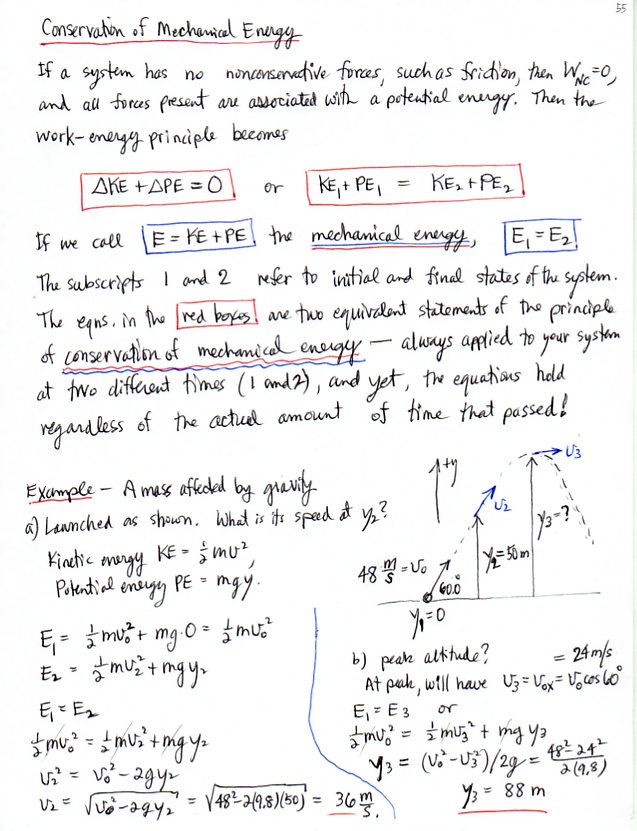 55
Conservation of Mechanical Energy
If a system has no nonconservative forces, such as friction, then W_NC = 0,
and all forces present are associated with a potential energy. Then the
work-energy principle becomes
ΔKE + ΔPE = 0 or KE₁ + PE₁ = KE₂ + PE₂
If we call E = KE + PE the mechanical energy, E₁ = E₂
The subscripts 1 and 2 refer to initial and final states of the system.
The eqns. in the red boxes are two equivalent statements of the principle
of conservation of mechanical energy — always applied to your system
at two different times (1 and 2), and yet, the equations hold
regardless of the actual amount of time that passed!
Example – A mass affected by gravity
a) Launched as shown. What is its speed at y₂?
Kinetic energy KE = ½mv²,
Potential energy PE = mgy.
E₁ = ½mv₀² + mg·0 = ½mv₀²
E₂ = ½mv₂² + mgy₂
E₁ = E₂
½mv₀² = ½mv₂² + mgy₂
v₂² = v₀² – 2gy₂
v₂ = √(v₀² – 2gy₂) = √(48² – 2(9.8)(50)) = 36 m/s.
+y
v₃
v₂
y₃ = ?
y₂ = 50 m
48 m/s = v₀
60.0°
y₁ = 0
b) peak altitude? = 24 m/s
At peak, will have v₃ = v₀ₓ = v₀ cos 60°
E₁ = E₃ or
½mv₀² = ½mv₃² + mgy₃
y₃ = (v₀² – v₃²)/2g = (48² – 24²)/2(9.8)
y₃ = 88 m